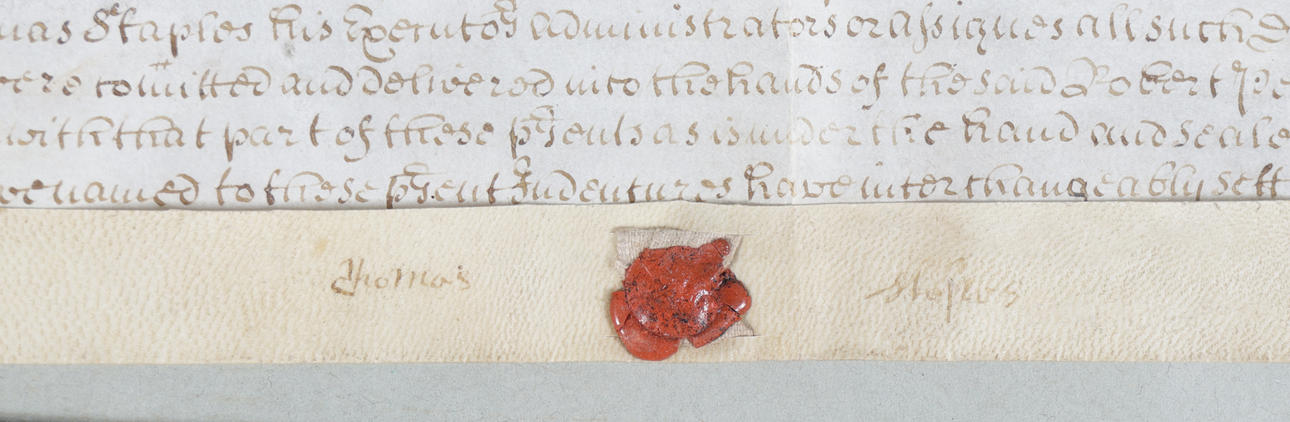 mas Staples his Executors Administrators or assignes all such
were comitted and Delivered into the hands of the said Robert
with that part of these psents as is under the hand and seale
named to these psent Indentures have interchangeably sett
Thomas Staples